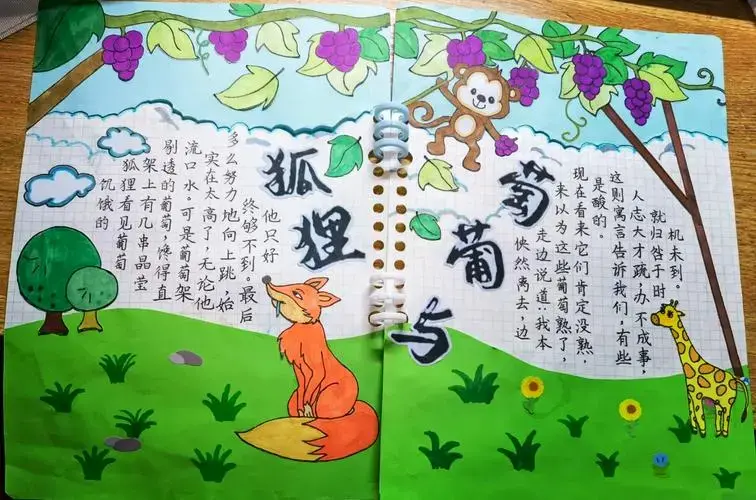 狐狸与葡萄
饥饿的
狐狸看见葡萄
架上有几串晶莹
剔透的葡萄,馋得直
流口水。可是葡萄架
实在太高了,无论他
多么努力地向上跳,始
终够不到。最后
他只好
怏然离去,边
走边说道:我本
来以为这些葡萄熟了,
现在看来它们肯定没熟,
是酸的。
这则寓言告诉我们,有些
人志大才疏,办不成事,
就归咎于时
机未到。